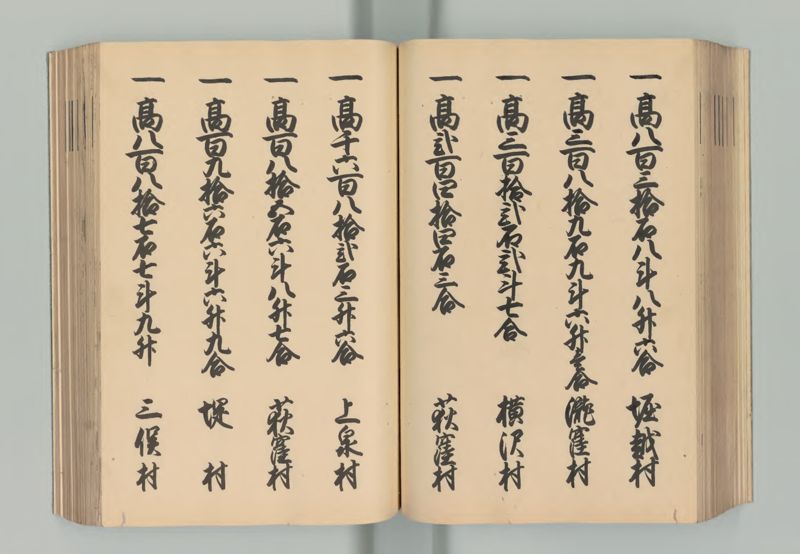 一高八百三拾石八斗八升六合 堀越村
一高三百八拾九石九斗六升壱合 瀧窪村
一高三百拾弐石弐斗七合 横沢村
一高弐百四拾四石三合 萩窪村
一高千六百八拾弐石三升六合 上泉村
一高百八拾五石六斗八升七合 荻窪村
一高百九拾六石六斗六升九合 堤村
一高八百八拾七石七斗九升 三俣村